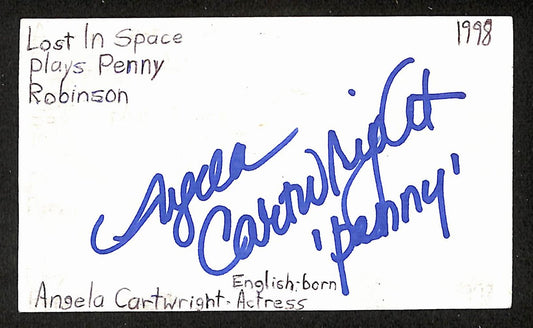 Lost In Space
plays Penny
Robinson
1998
Angela
Cartwright
'Penny'
English-born
Angela Cartwright - Actress